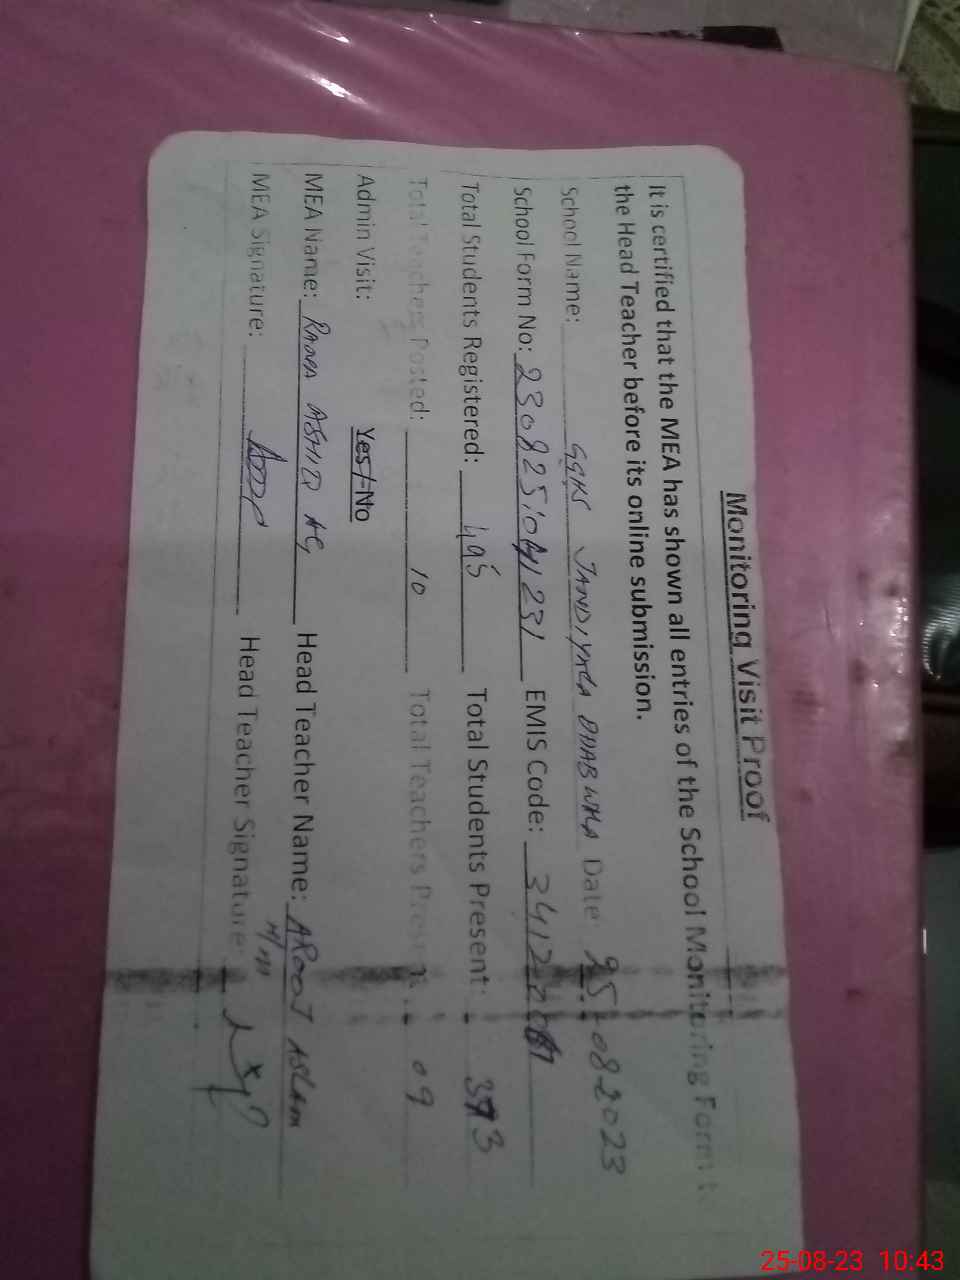 Monitoring Visit Proof
It is certified that the MEA has shown all entries of the School Monitoring Form to
the Head Teacher before its online submission.
School Name: JANDIYALA DHABWALA Date: 25-08-2023
School Form No: EMIS Code:
Total Students Registered: 495 Total Students Present: 373
Total Teachers Posted: 10 Total Teachers Present: 09
Admin Visit: Yes / No
MEA Name: RANA Head Teacher Name: AROOJ ASLAM
MEA Signature: Head Teacher Signature:
25-08-23 10:43